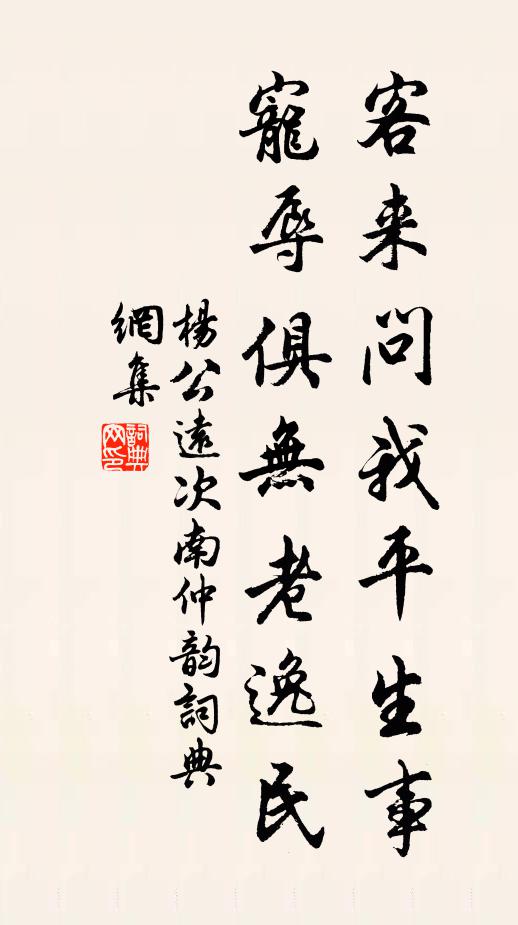 客来問我平生事
寵辱俱無老逸民
楊公遠次南仲韵詞典
網集
詞典
网印